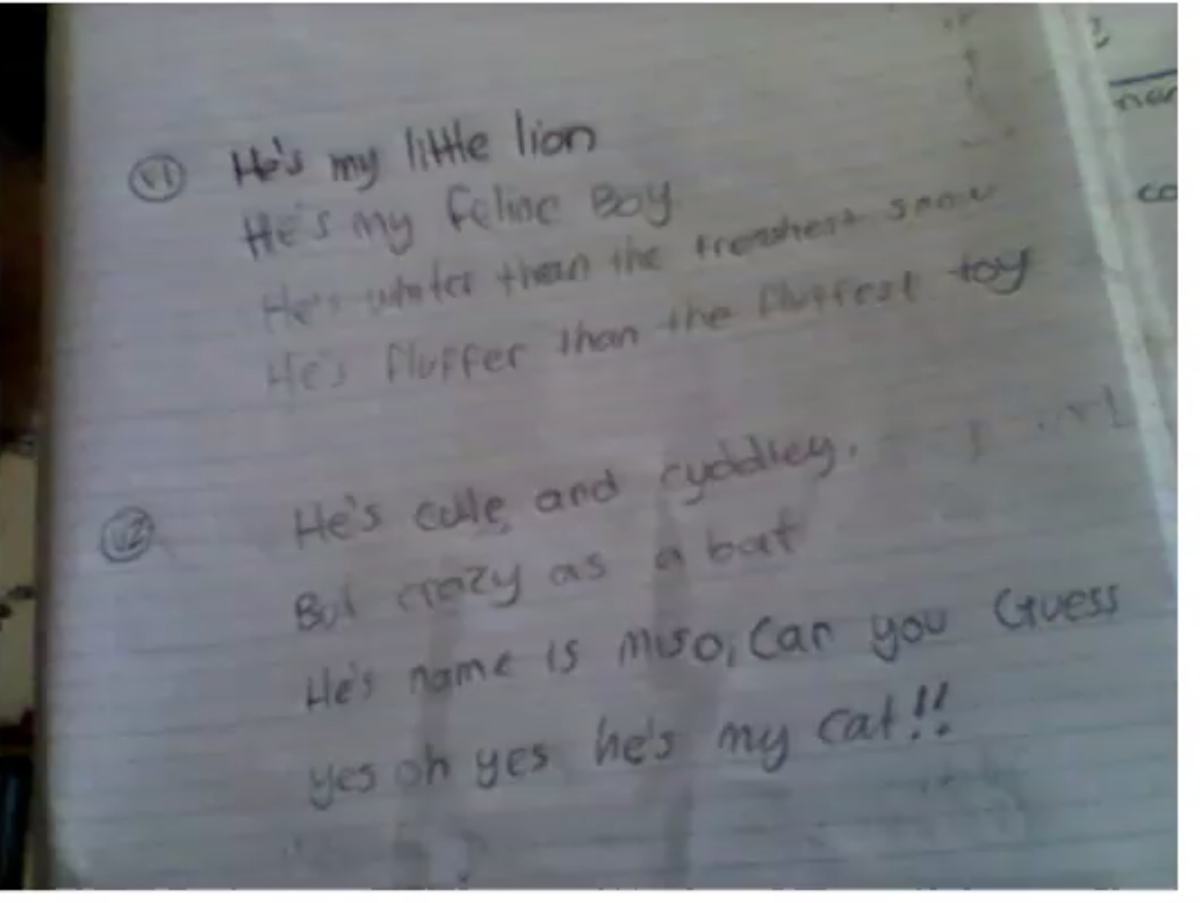 V1 He's my little lion
He's my feline Boy
He's whiter than the freshest snow
He's fluffer than the fluffest toy
V2 He's cute and cuddley.
But crazy as a bat
He's name is miso, Can you Guess
yes oh yes he's my cat!!